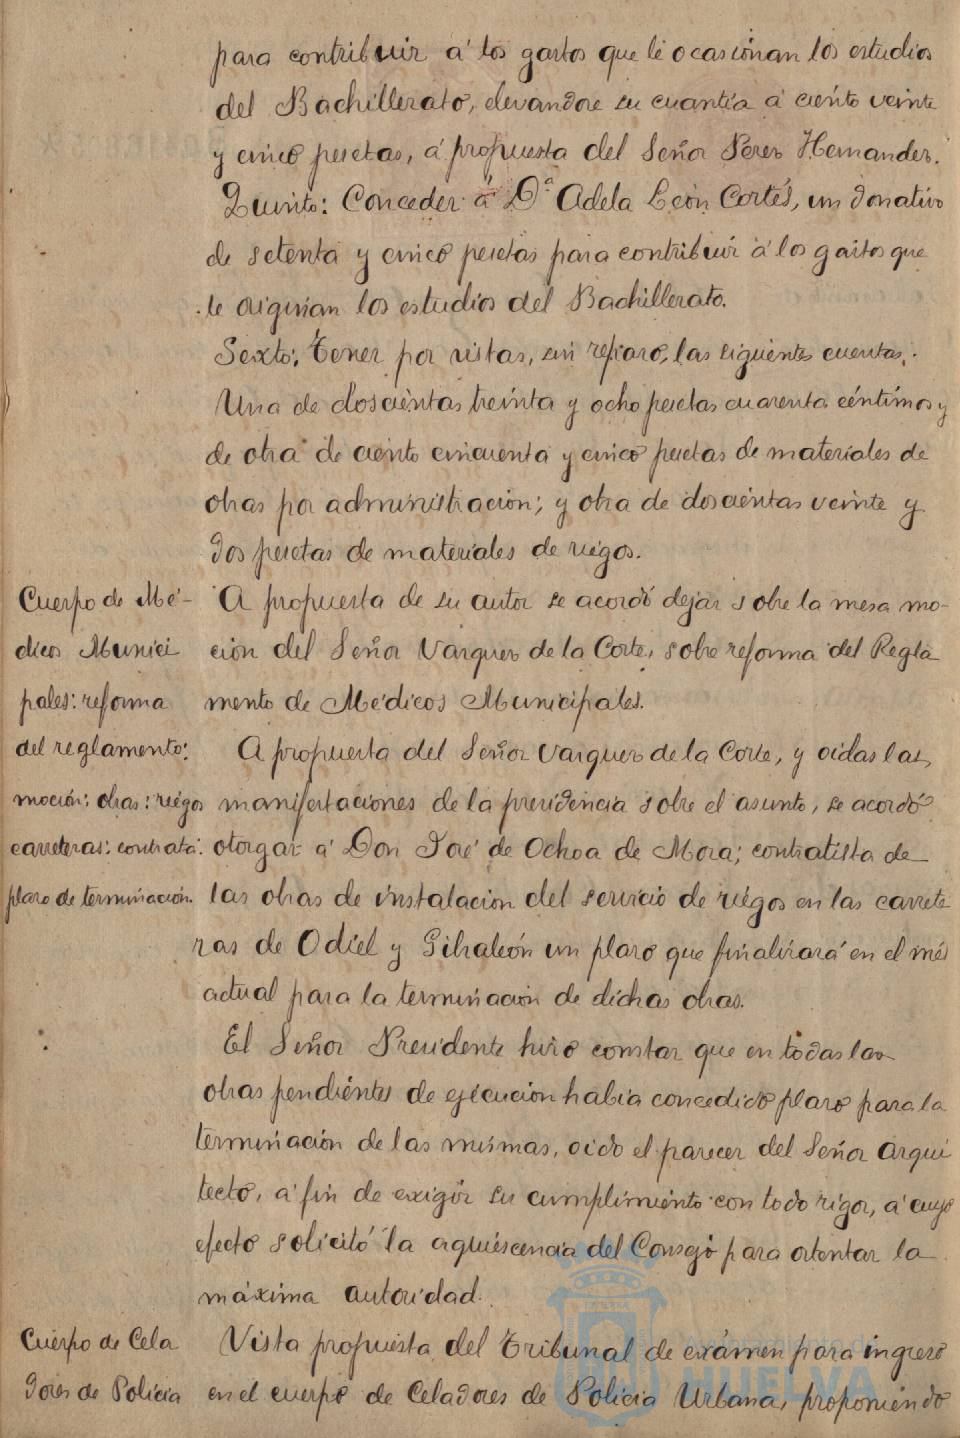 para contribuir á los gastos que le ocasionan los estudios
del Bachillerato, elevandose su cuantía á ciento veinte
y cinco pesetas, á propuesta del Señor Pérez Hernandez.
Quinto: Conceder á Dª Adela León Cortés, un donativo
de setenta y cinco pesetas para contribuir á los gastos que
le originan los estudios del Bachillerato.
Sexto: Tener por vistas, sin reparo, las siguientes cuentas:
Una de doscientas treinta y ocho pesetas cuarenta céntimos y
de otra de ciento cincuenta y cinco pesetas de materiales de
obras por administración; y otra de doscientas veinte y
dos pesetas de materiales de riegos.
Cuerpo de Mé-
dicos Munici
pales: reforma
del reglamento:
moción; obras: riegos
carreteras: contrata:
plazo de terminación.
A propuesta de su autor se acordó dejar sobre la mesa mo-
ción del Señor Vazquez de la Corte, sobre reforma del Regla
mento de Médicos Municipales.
A propuesta del Señor Vazquez de la Corte, y oidas las
manifestaciones de la presidencia sobre el asunto, se acordó
otorgar á Don José de Ochoa de Mora; contratista de
las obras de instalacion del servicio de riegos en las carrete
ras de Odiel y Gibraleón un plazo que finalizará en el més
actual para la terminación de dichas obras.
El Señor Presidente hizo constar que en todas las
obras pendientes de ejecución habia concedido plazo para la
terminación de las mismas, oido el parecer del Señor Arqui
tecto, á fin de exigir su cumplimiento con todo rigor, á cuyo
efecto solicitó la aquiescencia del Consejo para ostentar la
máxima autoridad.
Cuerpo de Cela
dores de Policia
Vista propuesta del Tribunal de exámen para ingreso
en el cuerpo de Celadores de Policia Urbana, proponiendo
Ayuntamiento de
HUELVA